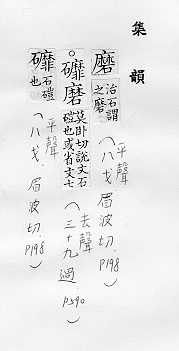 集韻
磨治石謂之磨(平聲 八戈 眉波切. P198)
○䃺磨莫卧切說文石磑也或省文七(去聲 三十九過 P590)
䃺石磑也(平聲 八戈. 眉波切. P198)